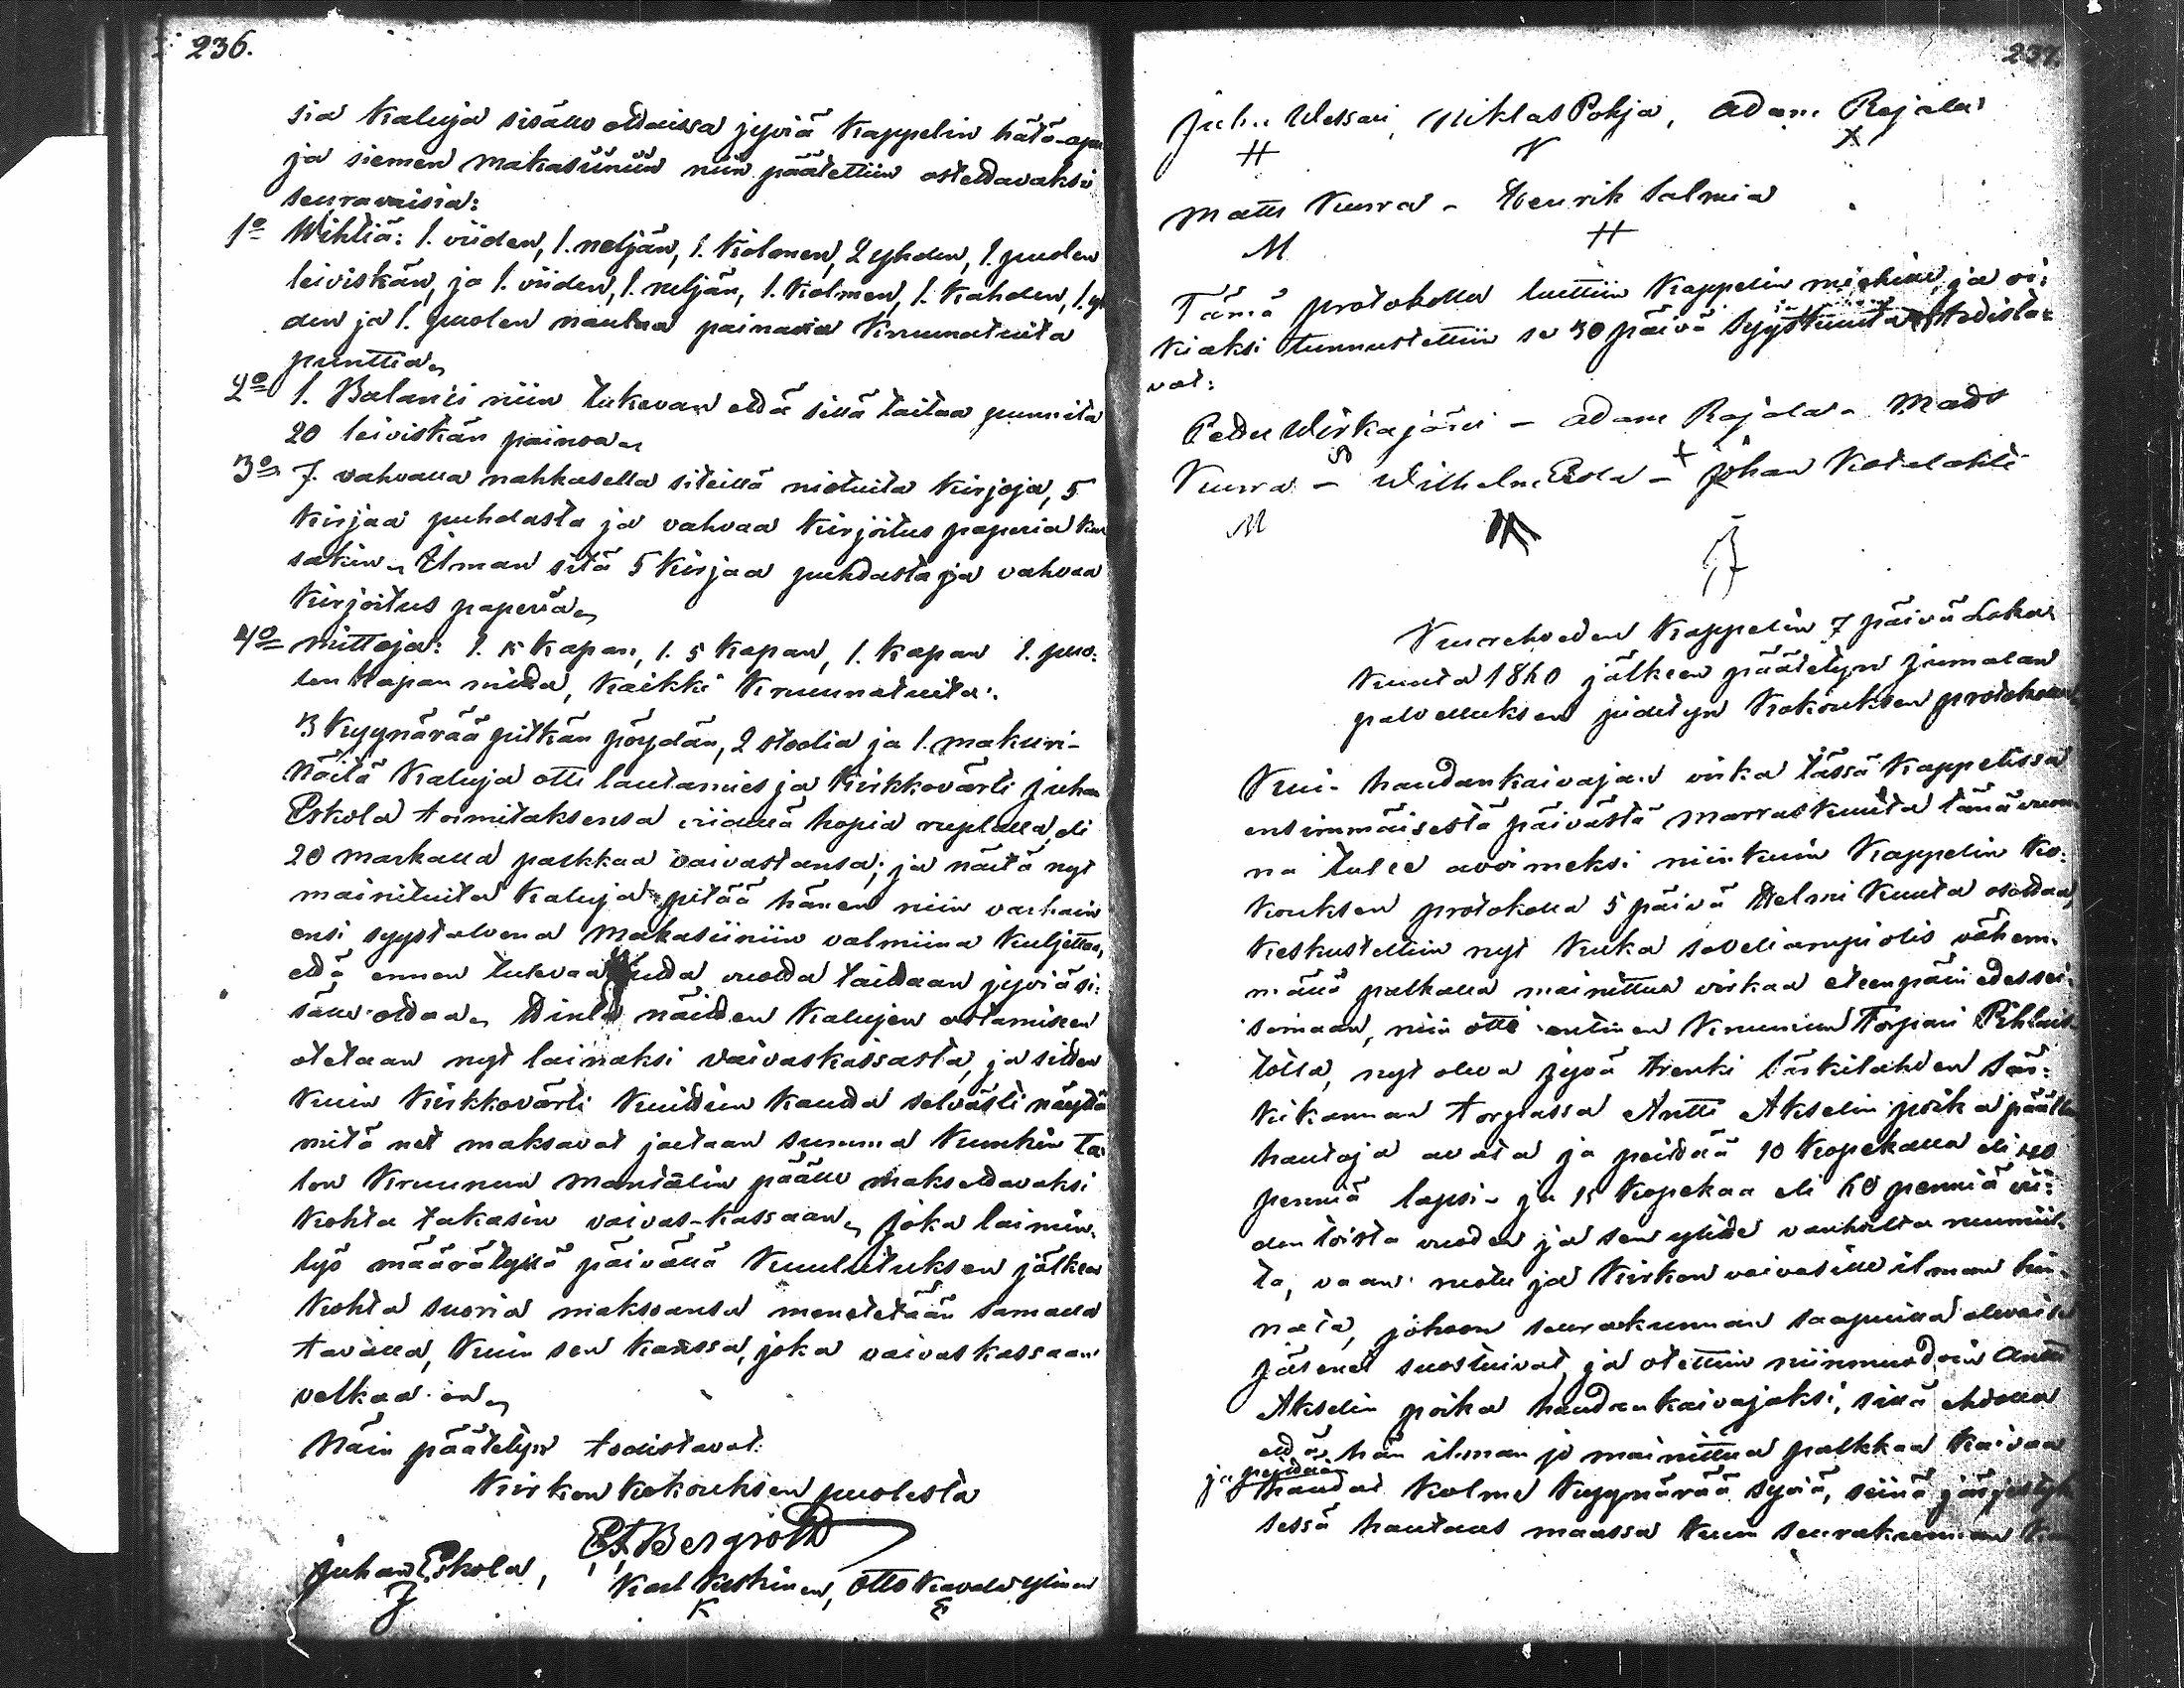 236.
sia kaluja sisälle ottaissa jyviä kappelin hätä-apu
ja siemen makasiiniin niin päätettiin ostettavaksi
seuravaisia:
1o Wihtiä: 1. viiden, 1. neljän, 1. kolmen, 2 yhden, 1. puolen
leiviskän, ja 1. viiden, 1. neljän, 1. kolmen, 1. kahden, 1. yh
den ja 1. puolen naulaa painavia kruunatuita
punttia„
2o 1. Balansi niin tukevan että sillä taitaa punnita
20 leiviskän painoa„
3o 7. vahvalla nahkasella siteillä niotuita kirjoja, 5
kirjaa puhdasta ja vahvaa kirjoitus paperia kus
sakin„ Ilman sitä 5 kirjaa puhdasta ja vahvaa
kirjoitus paperia„
4o mittoja: 1. 15 kapan, 1. 5 kapan, 1. kapan 1. puo:
len kapan mitta, kaikki kruunatuita:
3 kyynärää pitkän pöydän, 2 stoolia ja 1.
Näitä kaluja otti lautamies ja kirkkovärti Juhan
Eskola toimitaksensa viidellä hopia ruplalla eli
20 markalla palkkaa vaivastansa; ja näitä nyt
mainituita kaluja pitää hänen niin varhain
ensi syystalvena makasiiniin valmiina kuljettaa,
että ennen tulevaa uutta vuotta taittaan jyviä si:
sälle ottaa„ Hinta näitten kalujen ostamiseen
otetaan nyt lainaksi vaivaskassasta, ja sitten
kuin kirkkovärti kuittiin kautta selvästi näyttä
mitä net maksavat jaetaan summa kunkin ta:
lon kruunun mantalin päälle maksettavaksi
kohta takasin vaivas-kassaan„ Joka laimin-
lyö määrätyllä päivällä kuulutuksen jälkeen
kohta suoria maksoansa menetetään samalla
tavalla, kuin sen kanssa, joka vaivaskassaan
velkaa on„
Näin päätetyn todistavat:
Kirkon kokouksen puolesta
Bergroth
Juhan Eskola, Karl Keskinen, Otto Ylinen
J K
237.
Juha Wessari, Niklas Pohja, Adam Rajala
H N X
Matts Kuura - Henrik Salmia
M H
Tämä protokolla luettiin kappelin miehille, ja oi:
kiaksi tunnustettiin se 30 päivä Syyskuuta todista-
vat:
Petter Wirkajärvi - Adam Rajala - Matts
Kuura - Wilhelm Esola - Johan Kotalahti
M
Kuorehveden kappelin 7 päivä Loka
kuuta 1860 jälkeen päätetyn jumalan
palvelluksen pidetyn kokouksen protokolla
Kuin haudankaivajan virka tässä kappelissa
ensimmäisestä päivästä marraskuuta tänä vuon
na tulee avoimeksi niinkuin kappelin ko:
kouksen protokolla 5 päivä Helmi kuuta osottaa,
keskusteltiin nyt kuka soveliampi olis vähem-
mällä palkalla mainittua virkaa eteenpäin edessei-
somaan, niin otti entinen kruunun Torpari Pihlais-
tolla, nyt oleva jyvä trenki Lärkilahden Sär:
kikannan torpassa Antti Akselin poika päällen
hautoja avata ja peittää 10 kopekalla eli 40
penniä lapsi- ja 15 kopekaa eli 60 penniä vii:
den toista vuoden ja sen ylitte vanhoilta ruumiil-
ta, vaan ruotu ja kirkon vaivasille ilman hin-
nata, johoon seurakunnan saapuilla olevaiset
jäsenet suostuivat, ja otettiin niinmuodoin Antti
Akselin poika haudankaivajaksi, sillä ehdolla
että hän ilman jo mainittua palkkaa kaivaa
ja peittää haudat kolme kyynärää syviä, siinä järjestyk
sessä hautaus maassa kuin seurakunnan